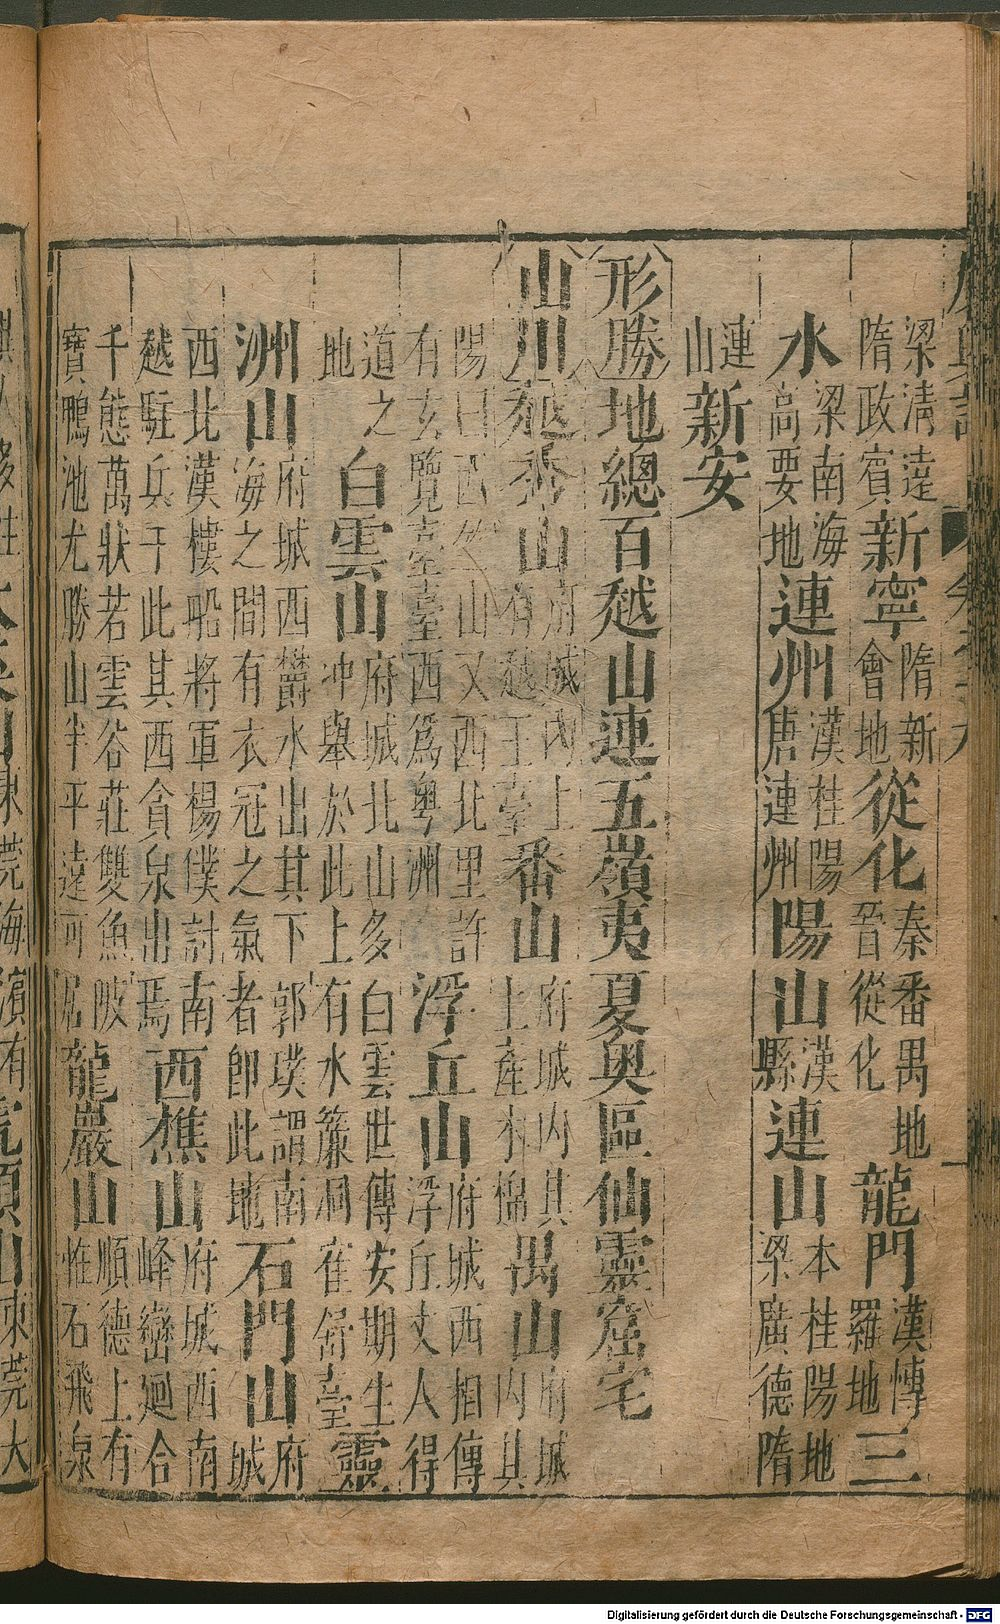 梁清遠隋政賓新寧隋新會地從化秦番禺地晉從化龍門漢博羅地三
水梁南海高要地連州漢桂陽唐連州陽山漢縣連山本桂陽地梁廣德隋
連山新安
形勝地總百越山連五嶺夷夏奧區仙靈窟宅
山川越秀山府城內上有越王臺番山府城內其上產木棉禺山府城內其
陽曰西竺山又西北里許有玄覽臺臺西爲粵洲浮丘山府城西相傳浮丘丈人得
道之地白雲山府城北山多白雲世傳安期生冲舉於此上有水簾洞舒臺靈
洲山府城西鬱水出其下郭璞謂南海之間有衣冠之氣者卽此地石門山府城
西北漢樓船將軍楊僕討南越駐兵于此其西貪泉出焉西樵山府城西南峰巒廻合
千態萬狀若雲谷莊雙魚陂寶鴨池尤勝山半平遠可居龍巖山順德上有惟石飛泉
東莞海濱有虎頭山東莞大
Digitalisierung gefördert durch die Deutsche Forschungsgemeinschaft - DFG